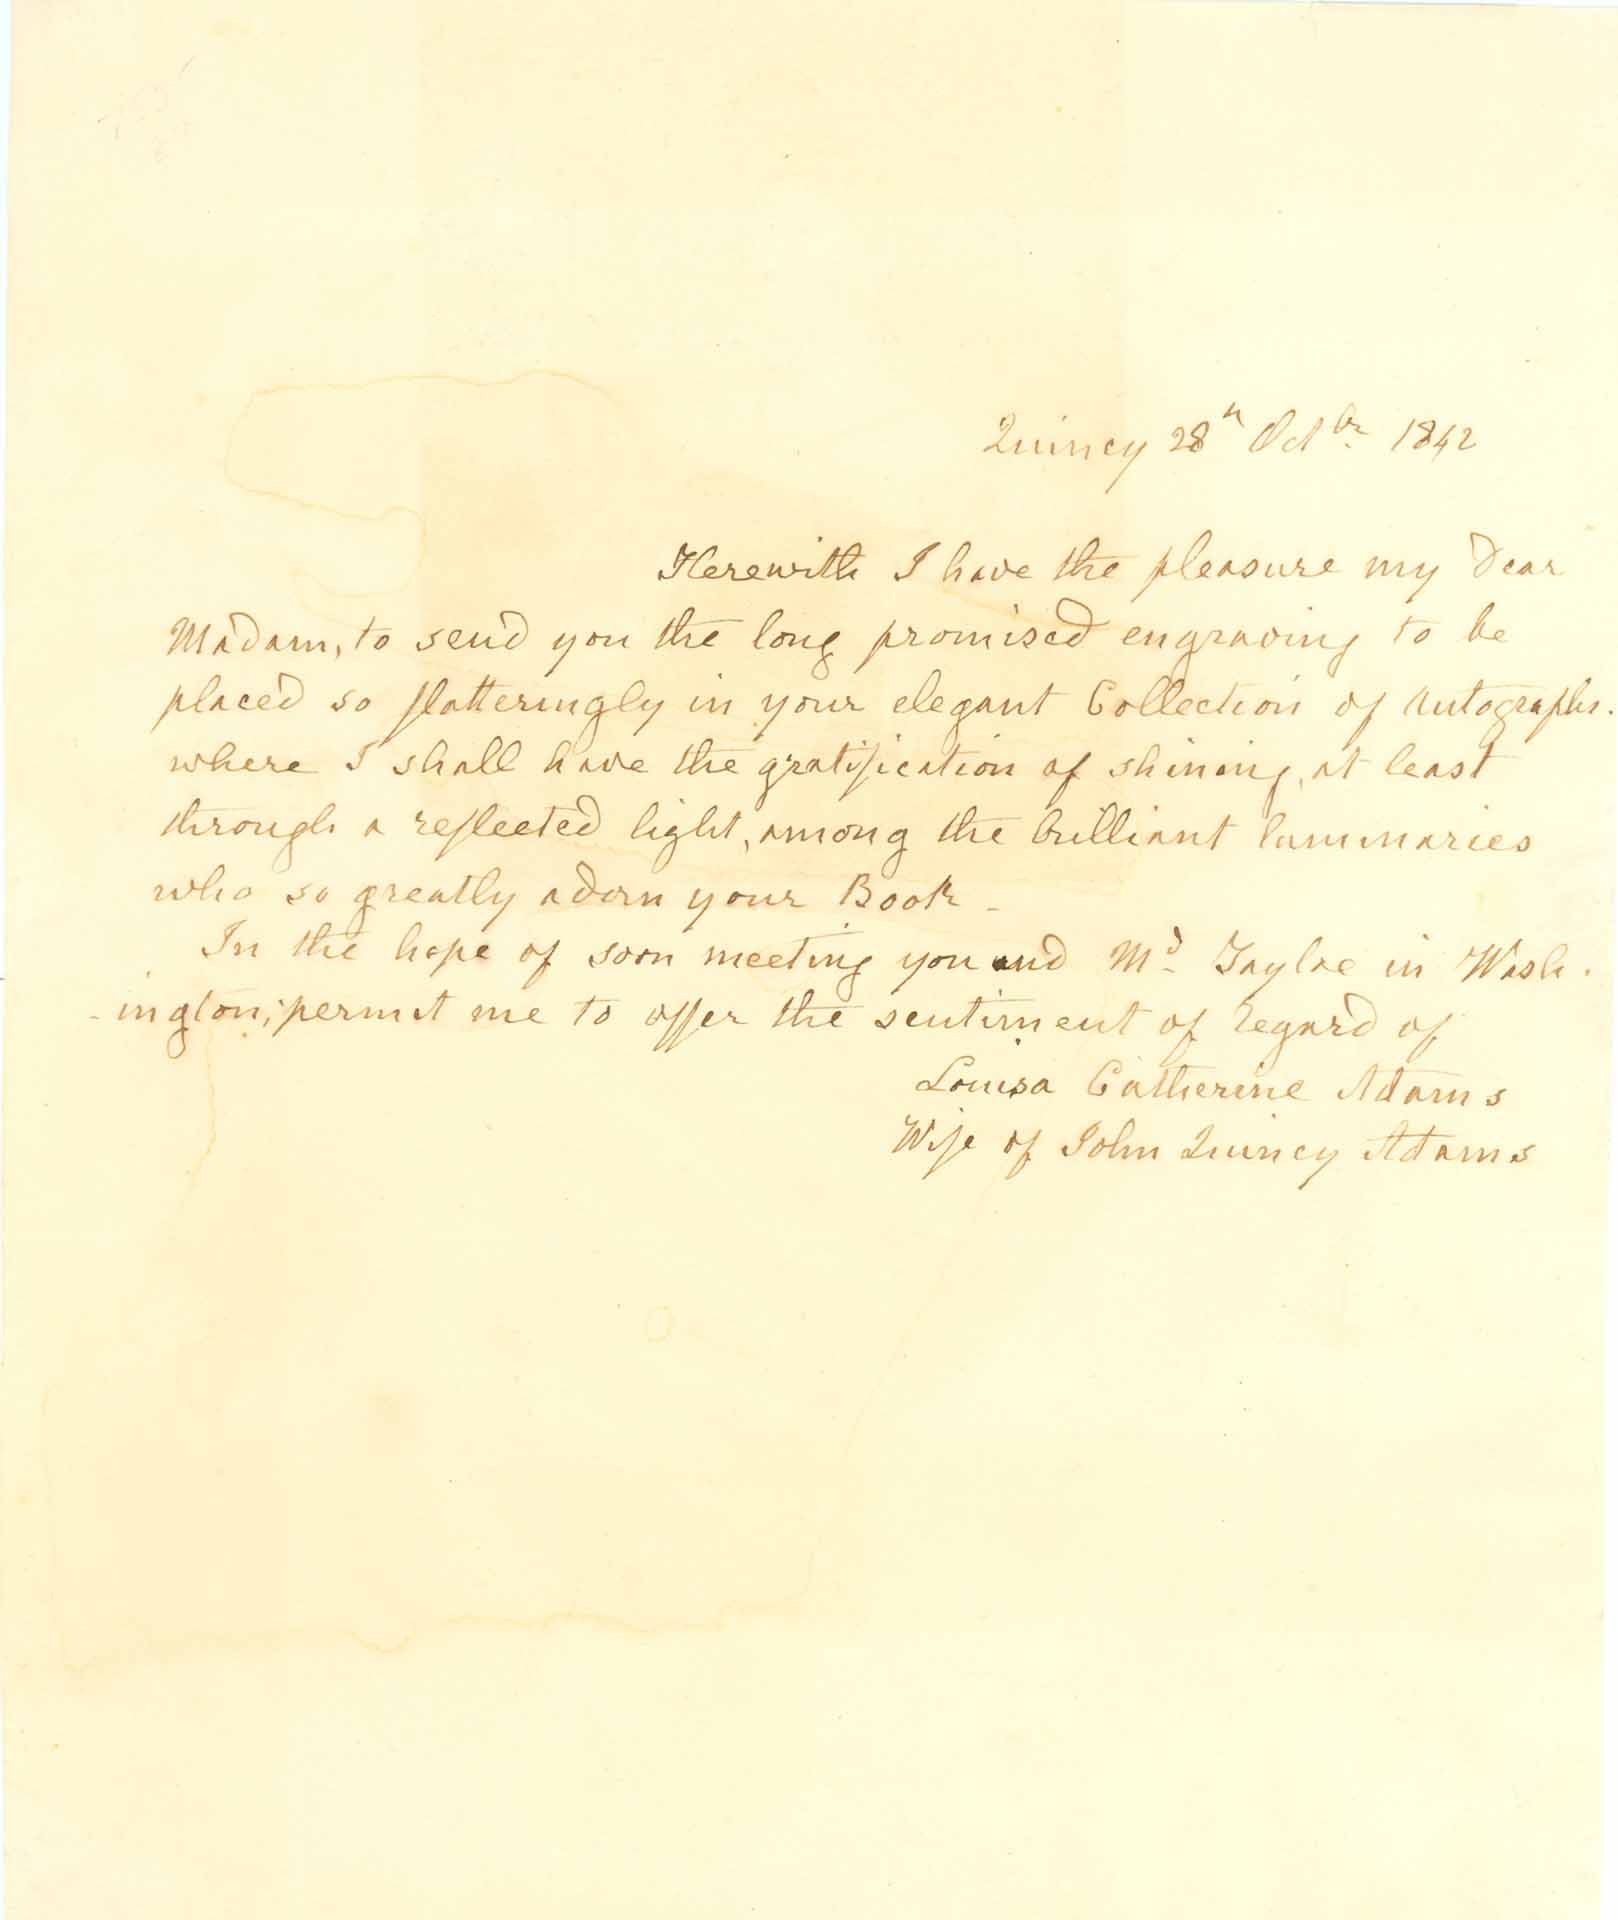 Quincy 28th Octbr 1842
Herewith I have the pleasure my Dear
Madam, to send you the long promised engraving to be
placed so flatteringly in your elegant Collection of Autographs.
where I shall have the gratification of shining, at least
through a reflected light, among the brilliant luminaries
who so greatly adorn your Book -
In the hope of soon meeting you and Mr Tayloe in Wash-
-ington; permit me to offer the sentiment of regard of
Louisa Catherine Adams
Wife of John Quincy Adams